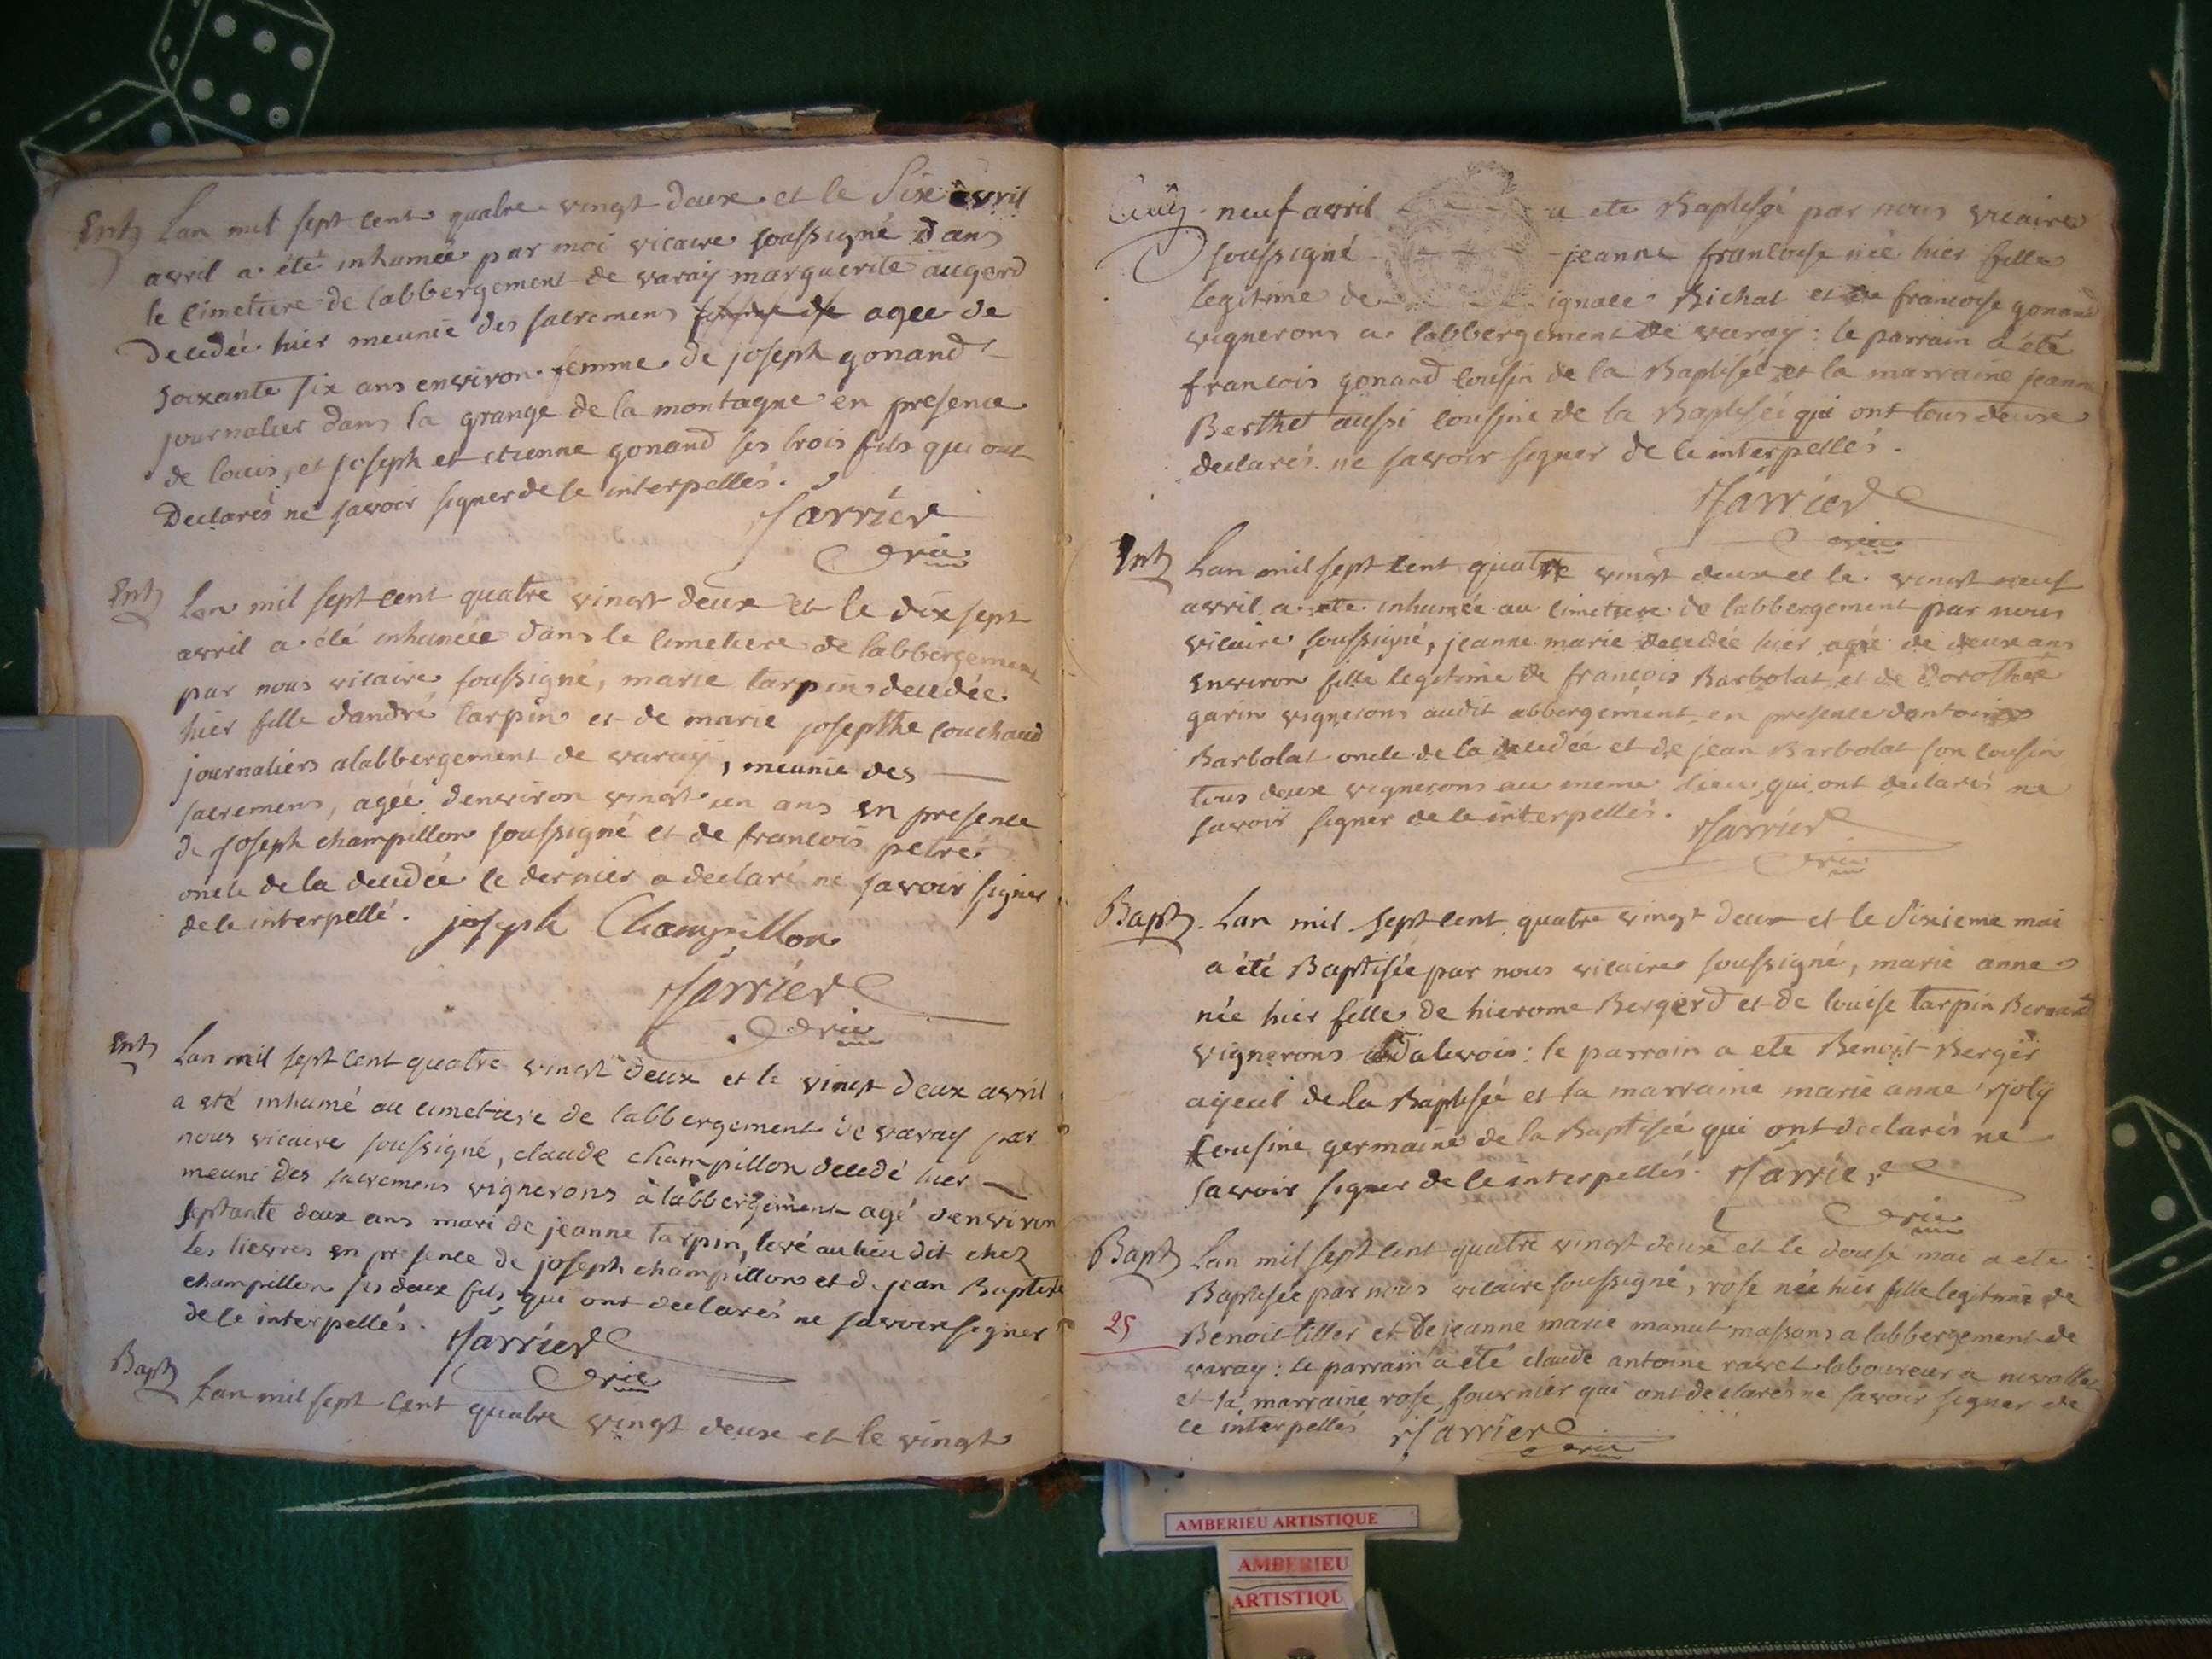 Ent
Lan mil sept cent quatre vingt deux et le Six avril
avril a été inhumée par moi vicaire soussigné Dans
le cimetiere de labbergement de varay marguerite augerd
Decedée hier meunie des sacremens femme de agée de
soixante six ans environ femme de joseph gonand
journalier dans la grange de la montagne en presence
de louis, et joseph et etienne gonand ses trois fils qui ont
Declarés ne savoir signer de ce interpellés.
Sarrier
vic
Ent
Lan mil sept cent quatre vingt deux et le dix sept
avril a été inhumée dans le cimetiere de labbergement
par nous vicaire soussigné, marie tarpin decedée
hier fille dandré tarpin et de marie josepthe couchaud
journaliers alabbergement de varay, meunie des
sacremens, agée denviron vingt un ans en presence
de joseph champillon soussigné et de francois petre
oncle de la decedée le dernier a declaré ne savoir signer
de ce interpellé. joseph Champillon
Sarrier
vic
Ent
Lan mil sept cent quatre vingt deux et le vingt deux avril
a été inhumé au cimetiere de labbergement de varay par
nous vicaire soussigné, claude champillon decedé hier
meuni des sacremens vignerons à labbergement agé denviron
septante deux ans mari de jeanne tarpin, levé au lieu dit chez
les lievres en presence de joseph champillon et de jean Baptiste
champillon ses deux fils que ont declarés ne savoir signer
de ce interpellés.
Sarrier
vic
Bapt
Lan mil sept cent quatre vingt deux et le vingt
neuf avril a ete Baptisée par nous vicaire
soussigné jeanne francoise née hier fille
legitime de ignace Bichat et de francoise gonand
vignerons a labbergement de varay: le parrain a été
francois gonand cousin de la Baptisée et la marraine jeanne
Berthet aussi cousine de la Baptisée qui ont tous deux
declarés ne savoir signer de ce interpellés.
Sarrier
vic
Ent
Lan mil sept cent quatre vingt deux et le vingt neuf
avril a ete inhumée au cimetiere de labbergement par nous
vicaire soussigné, jeanne marie decedée hier agé de deux ans
environ fille legitime de francois Barbolat et de Dorothée
garin vignerons audit abbergement en presence dantoine
Barbolat oncle de la decedée et de jean Barbolat son cousin
tous deux vignerons au meme lieu qui ont declarés ne
savoir signer de ce interpellés.
Sarrier
vic
Bapt
Lan mil sept cent quatre vingt deux et le Sixieme mai
a été Baptisée par nous vicaire soussigné, marie anne
née hier fille de hierome Bergerd et de louise tarpin Bernard
vignerons dalevois: le parrain a ete Benoit Berger
ayeul de la Baptisée et la marraine marie anne joly
cousine germaine de la Baptisée qui ont declarés ne
savoir signer de ce interpellés. Sarrier
vic
Bapt
Lan mil sept cent quatre vingt deux et le douse mai a ete
Baptisée par nous vicaire soussigné, rose née hier fille legitime de
25
Benoit tiller et de jeanne marie manut massons a labbergement de
varay: le parrain a été claude antoine ravet laboureur a
et la marraine rose fournier qui ont declarés ne savoir signer de
ce interpellés
Sarrier
vic
AMBERIEU ARTISTIQUE
AMBERIEU
ARTISTIQU